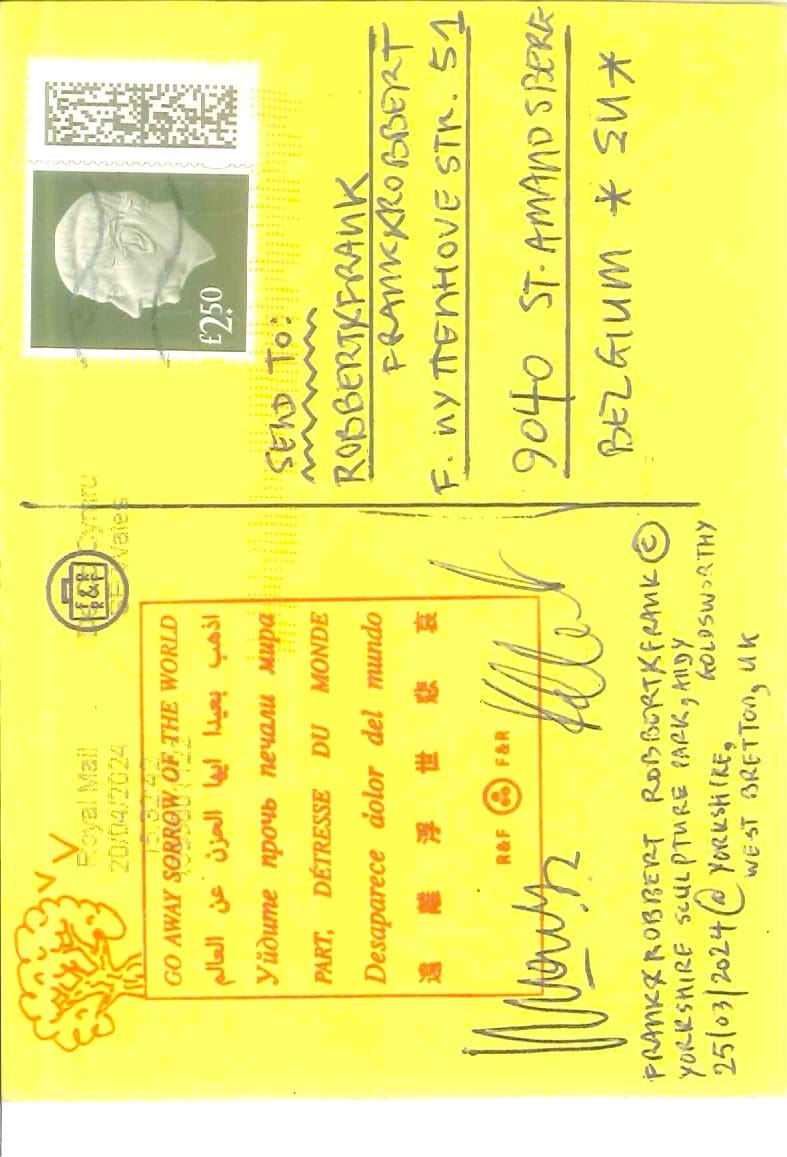 Royal Mail
20/04/2024
Cymru
Wales
GO AWAY SORROW OF THE WORLD
اذهب بعيدا ايها الحزن عن العالم
Уйдите прочь печали мира
PART, DÉTRESSE DU MONDE
Desaparece dolor del mundo
遠離浮世悲哀
R&F F&R
FRANK&ROBBERT ROBBERT&FRANK ©
YORKSHIRE SCULPTURE PARK, ANDY GOLDSWORTHY
25/03/2024 @ YORKSHIRE,
WEST BRETTON, UK
£2.50
SEND TO:
ROBBERT&FRANK
FRANK&ROBBERT
F. WYTTENHOVESTR. 51
9040 ST. AMANDSBERG
BELGIUM * EU *